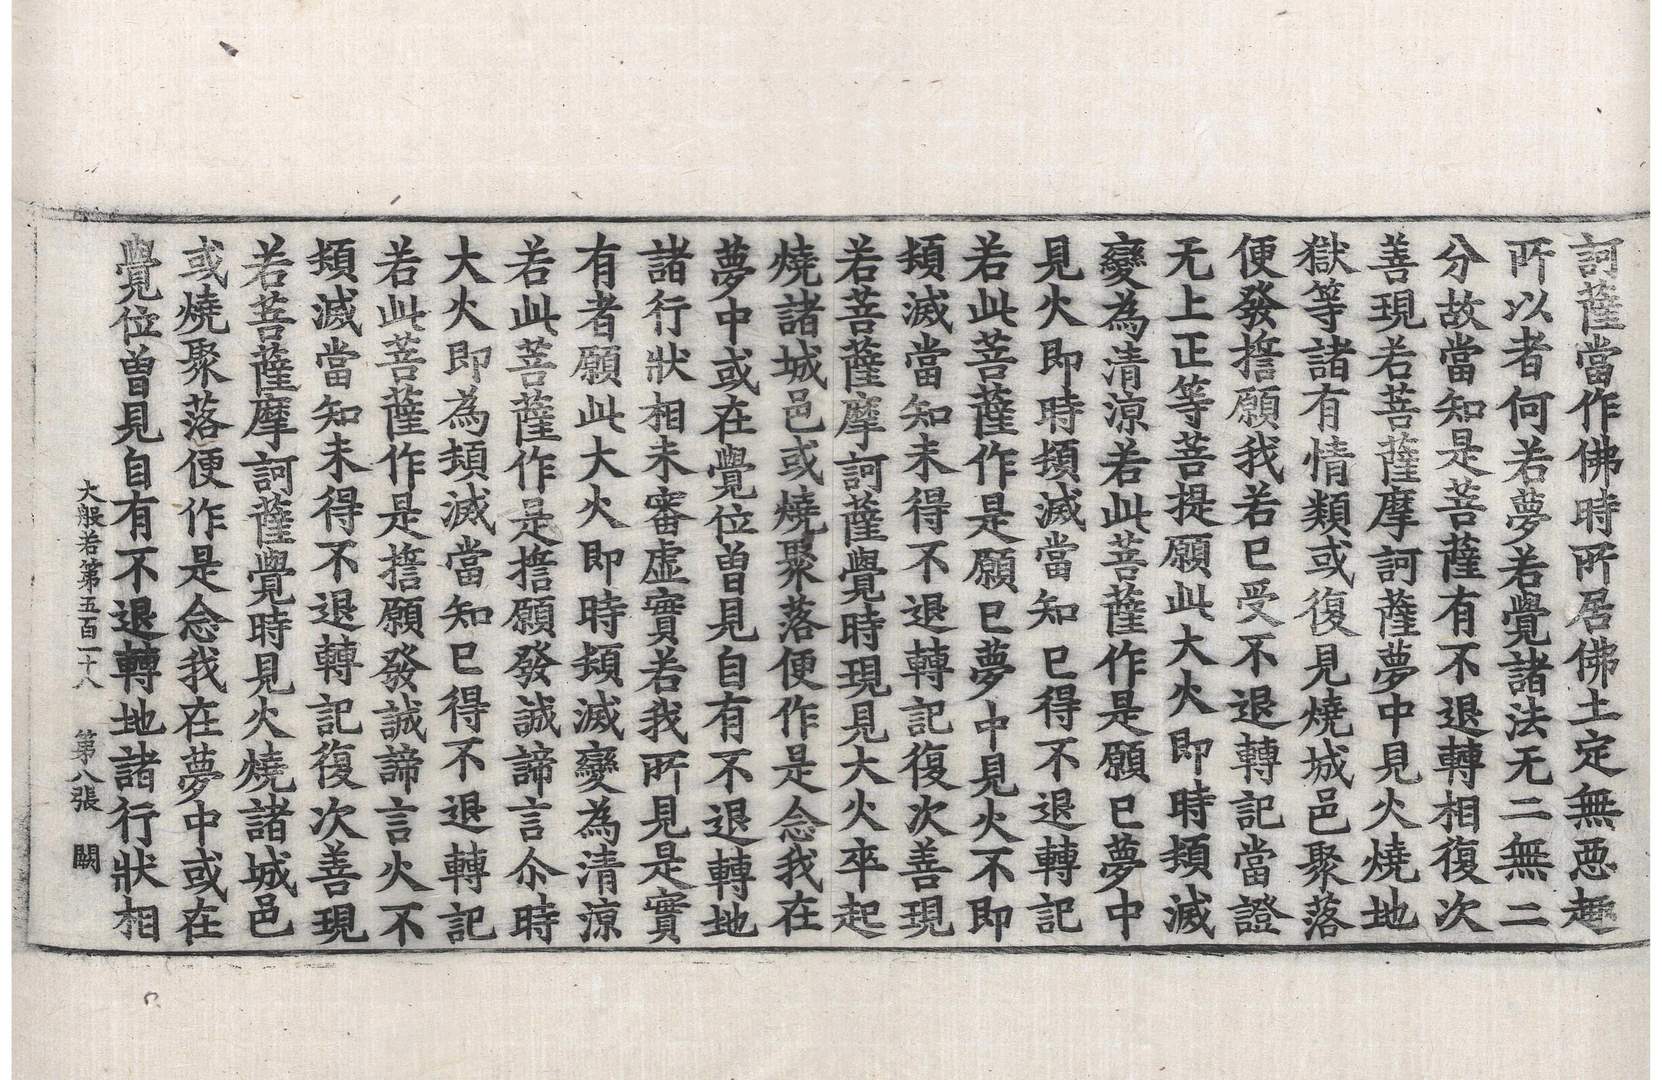 訶薩當作佛時所居佛土定無惡趣
所以者何若夢若覺諸法无二無二
分故當知是菩薩有不退轉相復次
善現若菩薩摩訶薩夢中見火燒地
獄等諸有情類或復見燒城邑聚落
便發誓願我若已受不退轉記當證
无上正等菩提願此大火即時頓滅
變為清涼若此菩薩作是願已夢中
見火即時頓滅當知已得不退轉記
若此菩薩作是願已夢中見火不即
頓滅當知未得不退轉記復次善現
若菩薩摩訶薩覺時現見大火卒起
燒諸城邑或燒聚落便作是念我在
夢中或在覺位曾見自有不退轉地
諸行狀相未審虛實若我所見是實
有者願此大火即時頓滅變為清涼
若此菩薩作是誓願發誠諦言尒時
大火即為頓滅當知已得不退轉記
若此菩薩作是誓願發誠諦言火不
頓滅當知未得不退轉記復次善現
若菩薩摩訶薩覺時見火燒諸城邑
或燒聚落便作是念我在夢中或在
覺位曾見自有不退轉地諸行狀相
大般若第五百一十八　第八張　闕